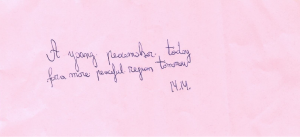 A young peacemaker today
for a more peaceful region tomorrow
M.M.